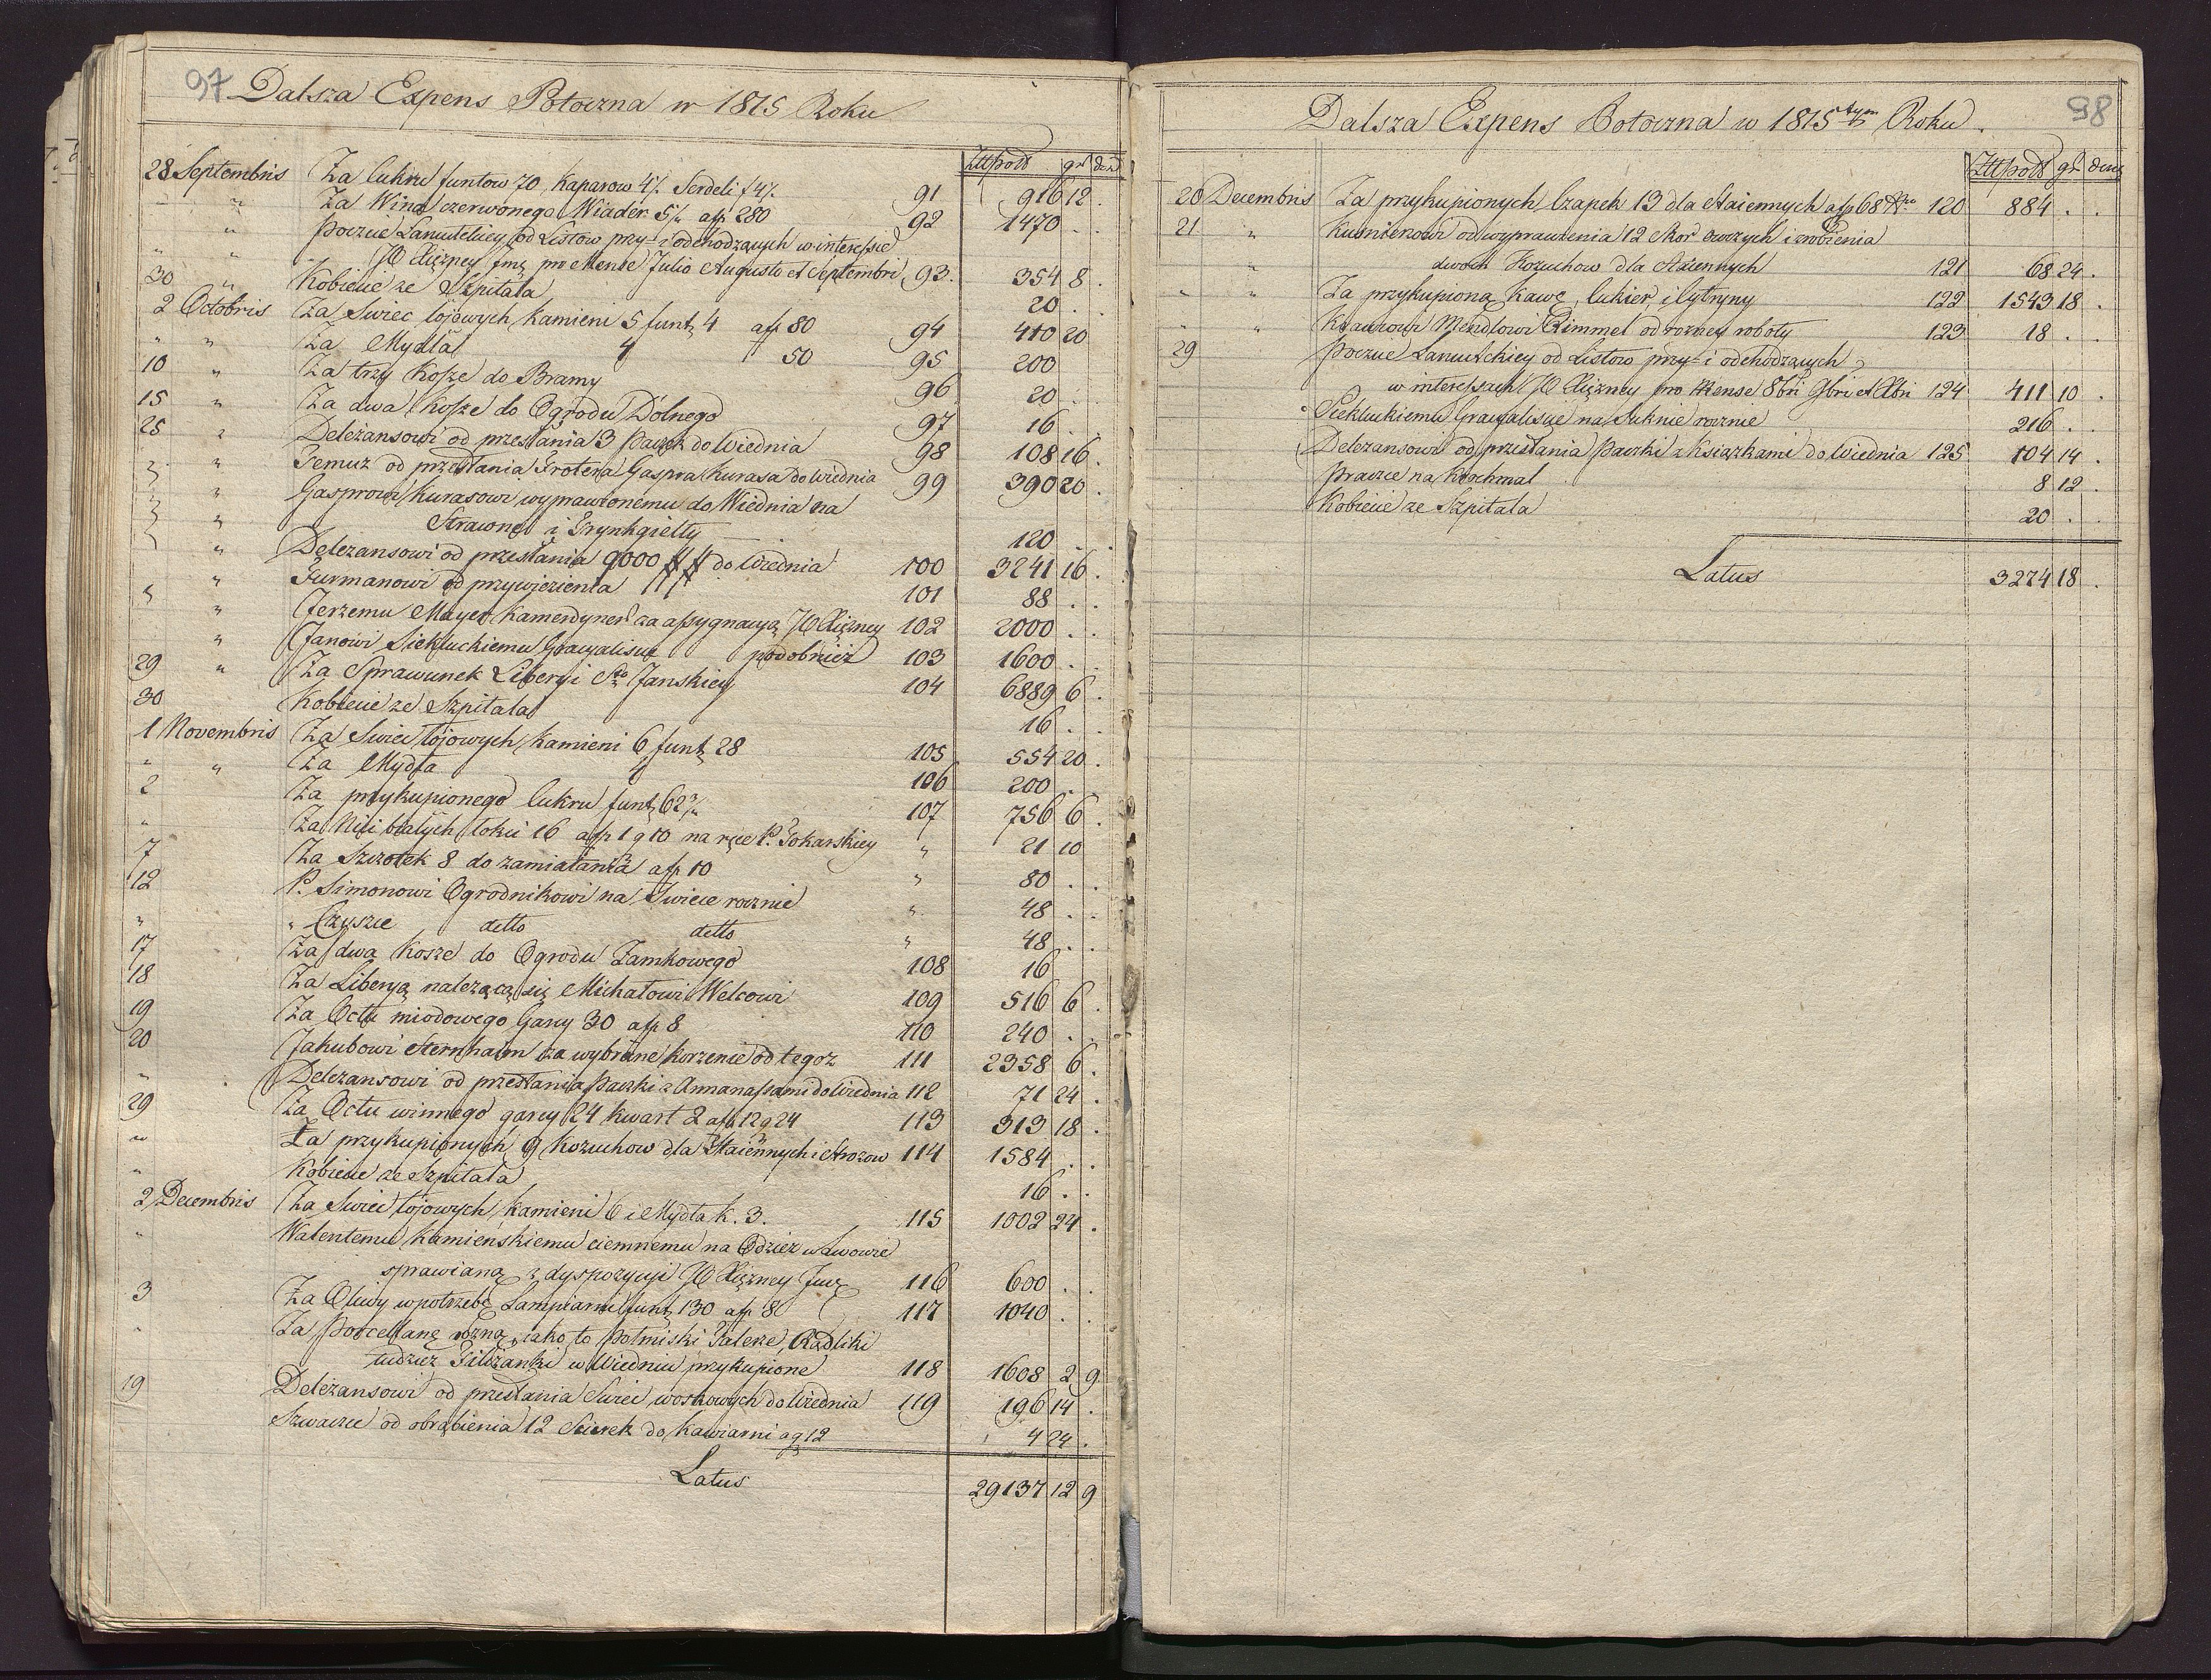 97 Dalsza Expens Potoczna w 1815 Roku
Złłpols gr den
28 Septembris Za Cukru funtow 70, Kaparow 4½ Serdeli f 4½ 91 916 12 .
" Za Wina czerwonego Wiader 5¼ a fp 280 92 1470 . .
" Poczcie Lancutskiey od Listow przy- i odchodzących w interessie
" " JO Xiężney Jmę pro Mense Julio Augusto et Septembri 93. 354 8 .
30 " Kobiecie ze Szpitala 20 . .
2 Octobris Za Swiec łojowych Kamieni 5 funt. 4 a fp 80 94 410 20
" " Za Mydła 4 50 95 200
10 " Za trzy Kosze do Bramy 96 20 .
15 " Za dwa Kosze do Ogrodu Dolnego 97 16 . .
25 " Deleżansowi od przesłania 3 Paczek do Wiednia 98 108 16 .
" " Temuż od przesłania Frotera Gaspra Kurasa do Wiednia 99 390 20 .
" " Gasprowi Kurasowi wyprawionemu do Wiednia na
" " Strawne i Trynkgielty 120 . .
" " Deleżansowi od przesłania 9000 ff ff do Wiednia 100 3241 16 .
" Furmanowi od przywiezienia 101 88 . .
" " Jerzemu Mayer Kamerdyner za assygnacyą JO Xiężney 102 2000 . .
" Janowi Siekluckiemu Gracyalisue podobnież 103 1600 . .
29 " Za Sprawunek Liberyi Sto Janskiey 104 6889 6 .
30 Kobiecie ze Szpitala 16 . .
1 Novembris Za Swiec łojowych Kamieni 6 funt. 28 105 554 20 .
" " Za Mydła 4 106 200 . .
2 Za przykupionego Cukru funt. 62¾ 107 756 6 .
" Za Nici białych łokci 16 a fp 1 g 10 na ręce P. Tokarskiey " 21 10
7 Za Szczotek 8 do zamiatania a fp 10 " 80 . .
12 P. Simonowi Ogrodnikowi na Swiece rocznie " 48 . .
" " Czyszie detto detto " 48 . .
17 Za dwa Kosze do Ogrodu Zamkowego 108 16
18 Za Liberyą należącą się Michałowi Welcowi 109 516 6 .
19 Za Octu miodowego Garcy 30 a fp 8 110 240 . .
20 Jakubowi Sternhaim za wybrane korzenie od tegoz 111 2358 6 .
" Deleżansowi od przesłania Paczki z Annanassami do Wiednia 112 71 24 .
29 Za Octu winnego garcy 24 kwart 2 a fp 12 g 24 113 313 18 .
" Za przykupionych 9 Kozuchow dla Staiennych i Strozow 114 1584 . .
" Kobiecie ze Szpitala 16 . .
2 Decembris Za Swiec łojowych Kamieni 6 i Mydła k. 3. 115 1002 24 .
" Walentemu Kamienskiemu ciemnemu na Odziez w Lwowie
sprawianą z dyspozycyi JO Xiężney Jmę 116 600 . .
3 Za Oliwy w potrzebę Lampiarni funt. 130 a fp 8 117 1040 . .
" Za Porcellanę rozną, iako to Połmiski Talerze, Radliki
tudzież Filizanki w Wiedniu przykupione 118 1608 2 9
19 Deleżansowi od przesłania Swiec woskowych do Wiednia 119 196 14 .
Szwaczce od obrąbienia 12 Scierek do Kawiarni a g 12 4 24 .
Latus 29137 12 9
Dalsza Expens Potoczna w 1815tym Roku. 98
Złłpols gr deng
20 Decembris Za przykupionych Czapek 13 dla Staiennych a fp 68 120 884 . .
21 " Kusnierzowi od wyprawienia 12 Skor owczych i zrobienia
" dwoch Kozuchow dla Staiennych 121 68 24 .
" " Za przykupioną Kawę, Cukier i Cytryny 122 1543 18 .
" " Krawcowi Mendlowi Rimmel od rozney roboty 123 18 . .
29 Poczcie Lancutckiey od Listow przy- i odchodzących
w interessach JO Xiężney pro Mense 8bri 9bri et Xbri 124 411 10 .
Siekluckiemu Gracyalisue na Suknie rocznie 216 . .
Deleżansowi od przesłania Paczki z Książkami do Wiednia 125 104 14 .
Praczce na Krochmal 8 12 .
Kobiecie ze Szpitala 20 . .
Latus 3274 18 .